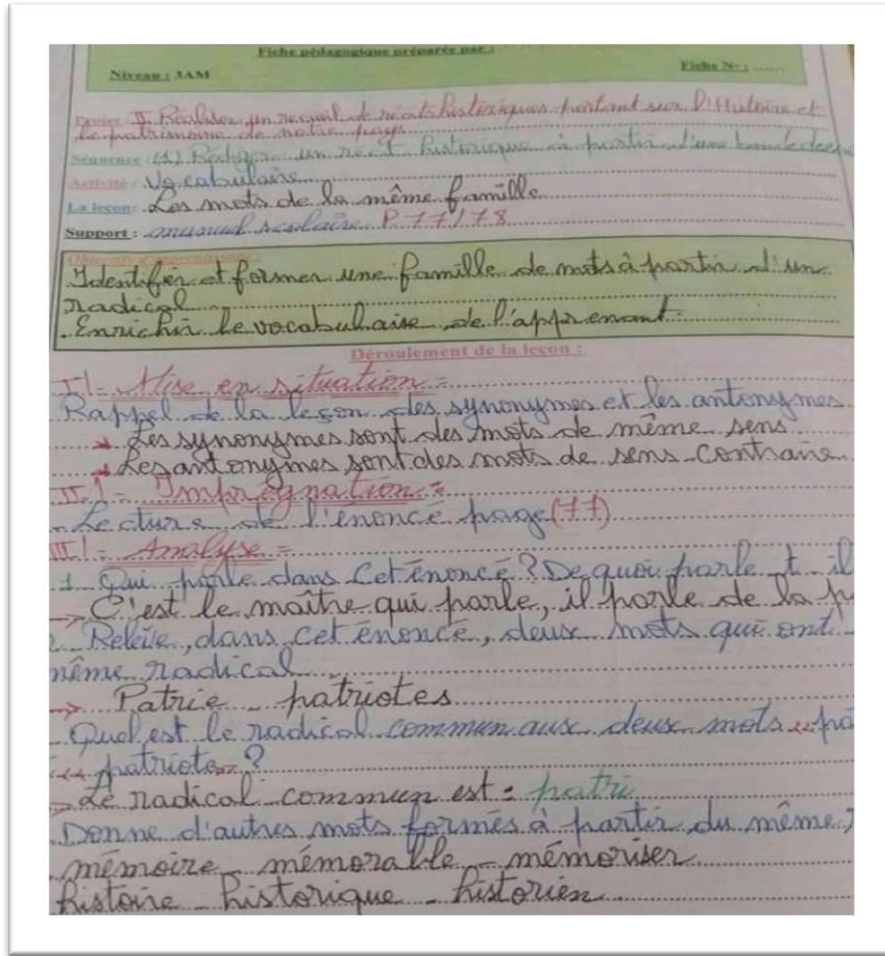 Fiche pédagogique préparée par :
Niveau : 3AM
Fiche N° : ......
Projet : II Réaliser un recueil de récits historiques portant sur l'Histoire et
le patrimoine de notre pays
Séquence : (1) Rédiger un récit historique à partir d'une bande dess
Activité : Vocabulaire
La leçon : Les mots de la même famille
Support : manuel scolaire P 77/78
Objectifs d'apprentissage :
Identifier et former une famille de mots à partir d'un
radical
Enrichir le vocabulaire de l'apprenant
Déroulement de la leçon :
I - Mise en situation :
Rappel de la leçon des synonymes et les antonymes
Les synonymes sont des mots de même sens
Les antonymes sont des mots de sens contraire
II - Imprégnation :
- Lecture de l'énoncé page (77)
III - Analyse :
1 Qui parle dans cet énoncé ? De quoi parle t-il
→ C'est le maître qui parle, il parle de la p
2 Relève, dans cet énoncé, deux mots qui ont
même radical
→ Patrie - patriotes
Quel est le radical commun aux deux mots « pa
« patriotes » ?
→ Le radical commun est : patri
Donne d'autres mots formés à partir du même
mémoire - mémorable - mémoriser
histoire - historique - historien